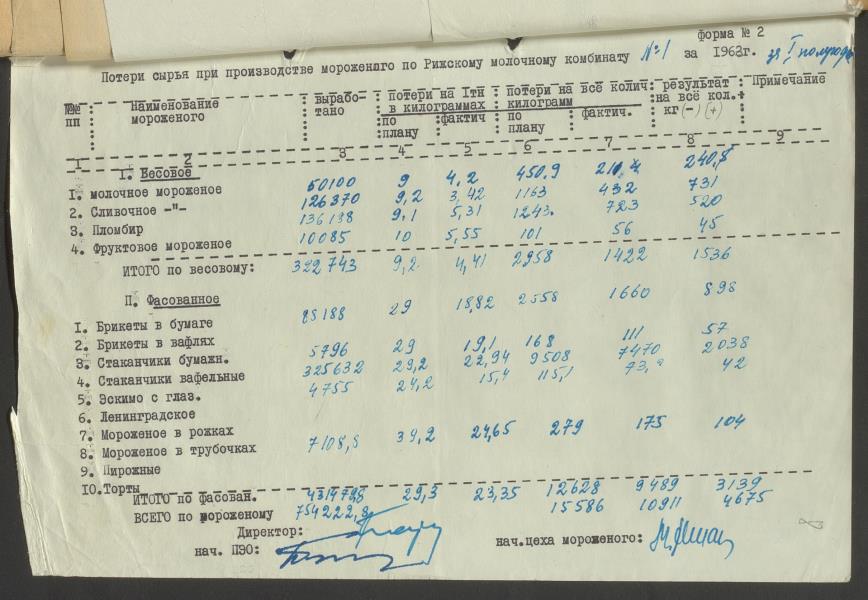 форма № 2
Потери сырья при производстве мороженого по Рижскому молочному комбинату №1 за 1963г. за I полугод
№№ пп Наименование мороженого вырабо- тано потери на Iтн в килограммах потери на всё колич. килограмм результат на всё кол.+ кг (-) (+) Примечание
по плану фактич по плану фактич.
1 2 3 4 5 6 7 8 9
I. Весовое
I. молочное мороженое 50100 9 4,2 450.9 210. 240,8
2. Сливочное -"- 126370 9,2 3,42 1163 432 731
3. Пломбир 136188 9,1 5,31 1243. 723 520
4. Фруктовое мороженое 10085 10 5,55 101 56 45
ИТОГО по весовому: 322743 9,2 4,41 2958 1422 1536
П. Фасованное
I. Брикеты в бумаге 88188 29 18,82 2558 1660 898
2. Брикеты в вафлях 5796 29 19,1 168 111 57
3. Стаканчики бумажн. 325632 29,2 22,94 9508 7470 2038
4. Стаканчики вафельные 4755 24,2 15,4 115,1 73, 42
5. Эскимо с глаз.
6. Ленинградское
7. Мороженое в рожках 7108,8 39,2 24,65 279 175 104
8. Мороженое в трубочках
9. Пирожные
10. Торты
ИТОГО по фасован. 431479,8 29,3 23,35 12628 9489 3139
ВСЕГО по мороженому 754222,8 15586 10911 4675
Директор:
нач. ПЭО: нач.цеха мороженого: